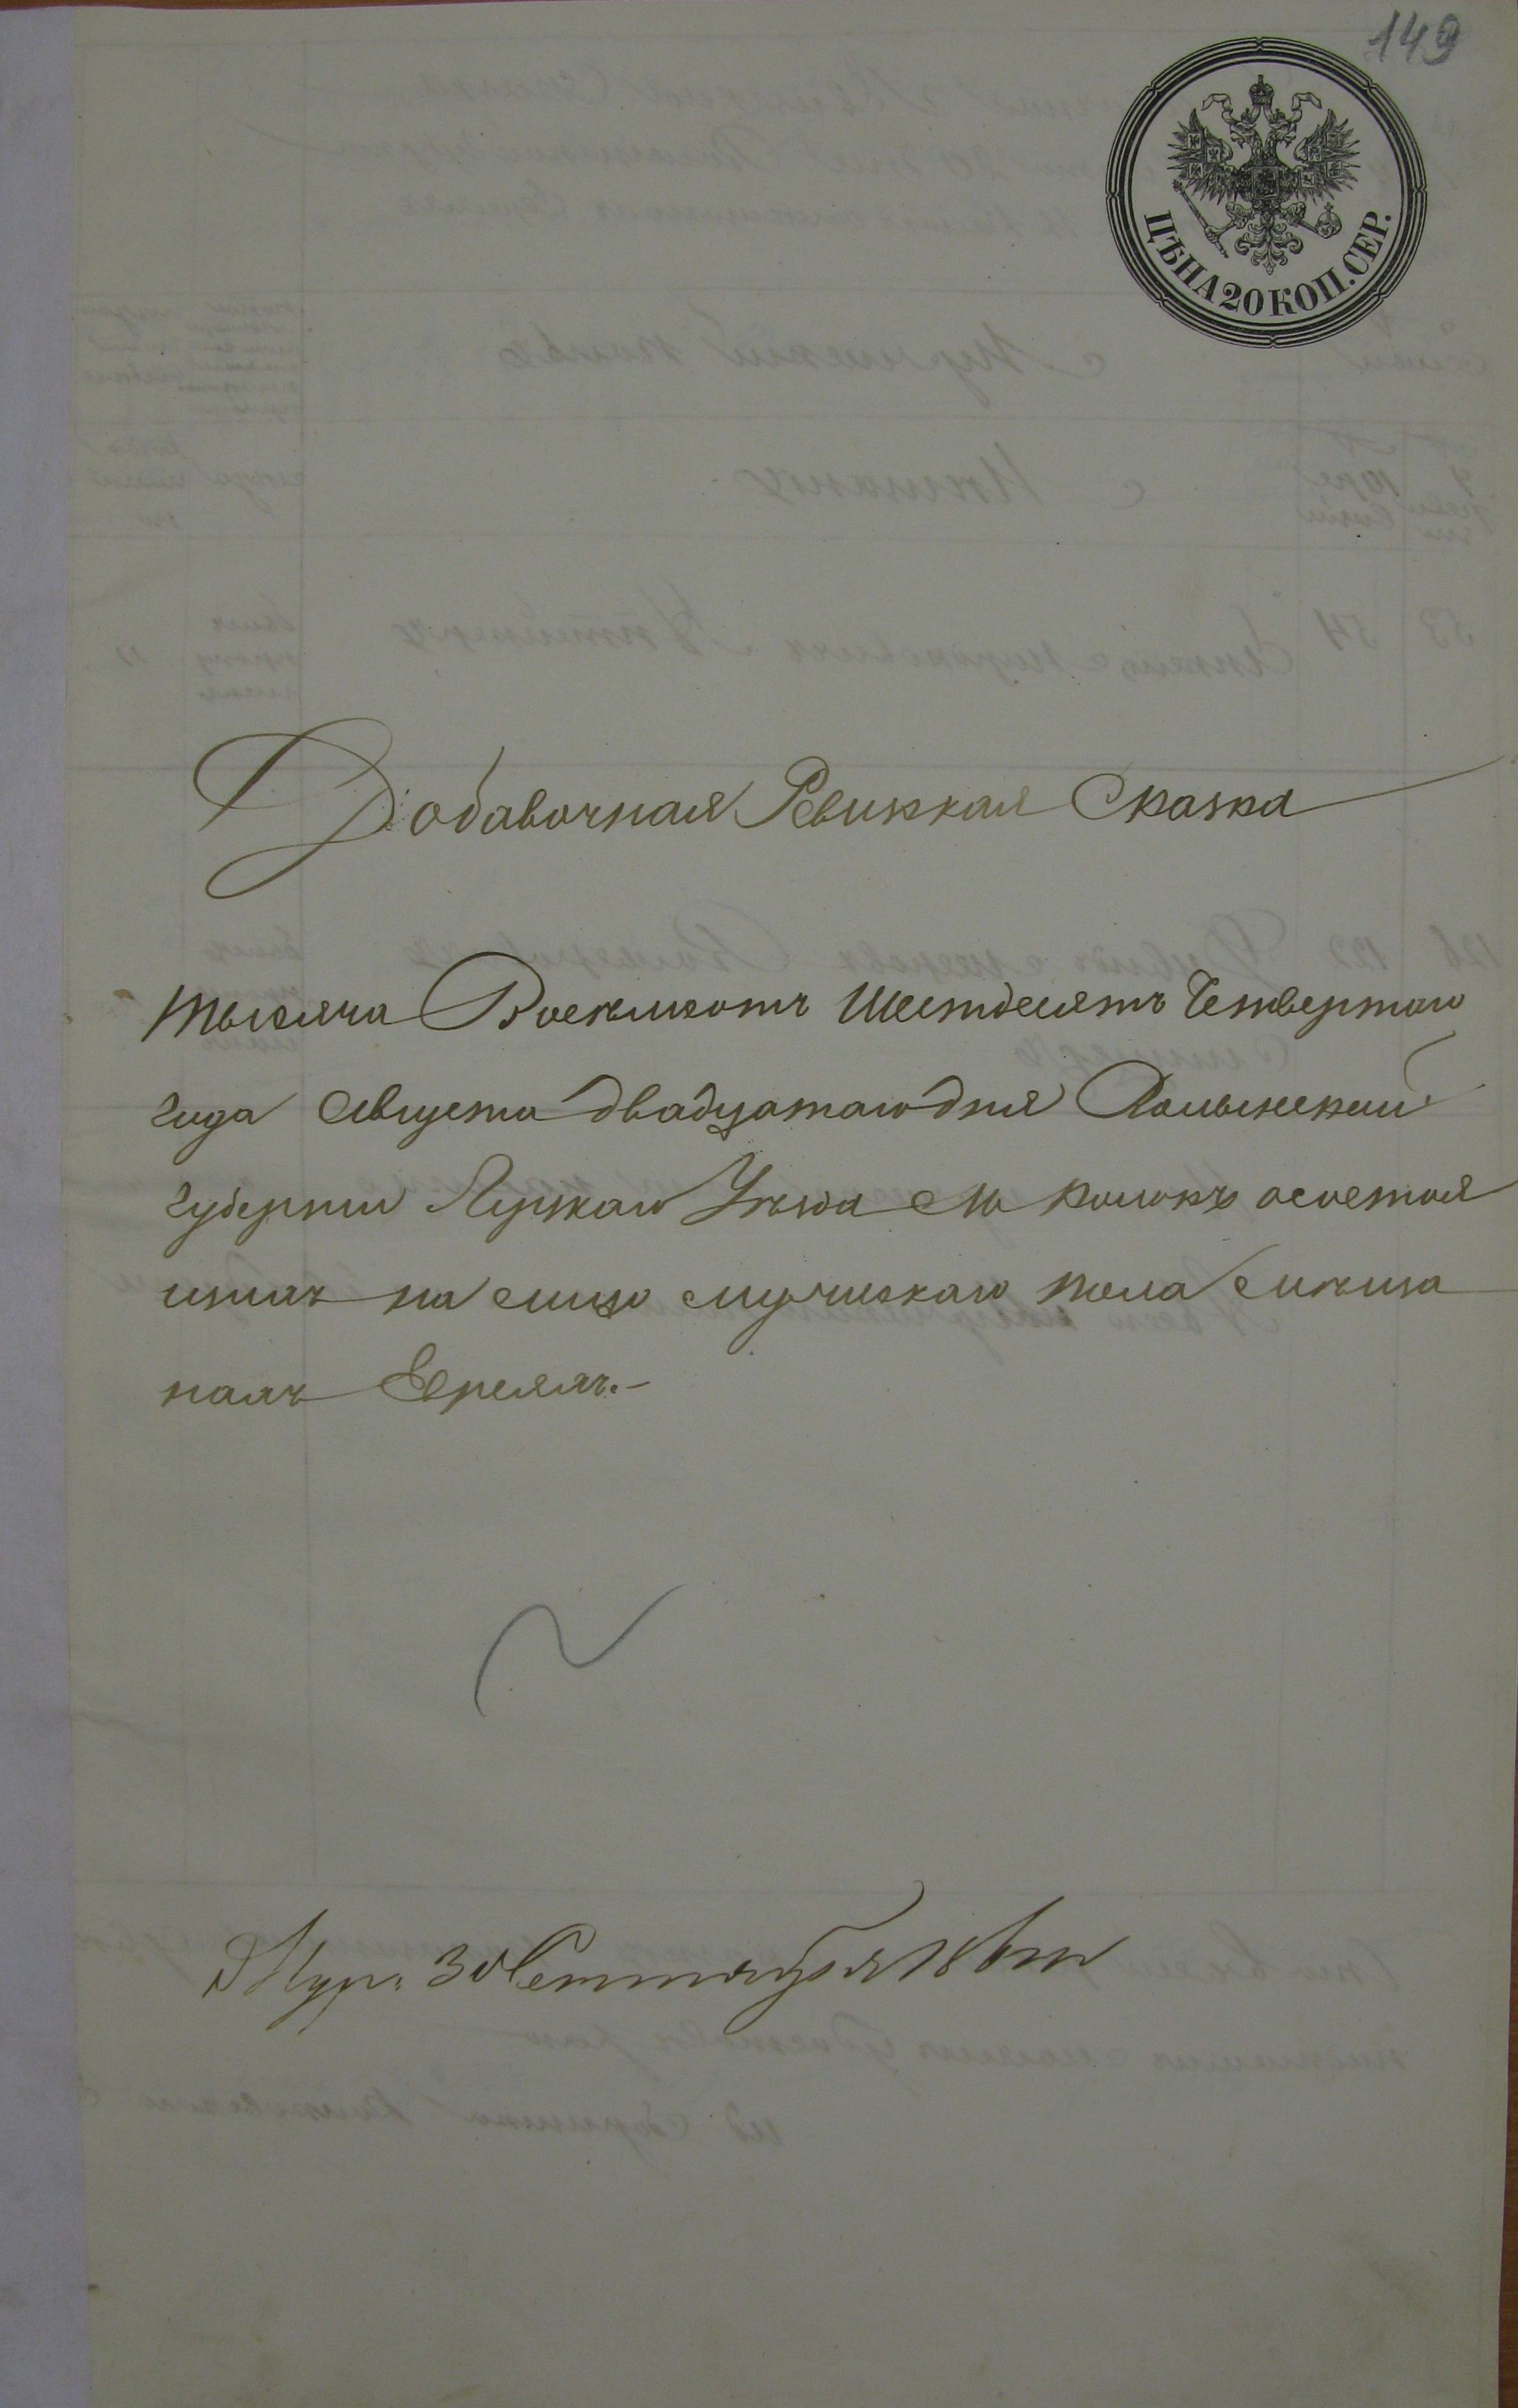 149
ЦѢНА 20 КОП. СЕР.
Добавочная Ревизкая Сказка
Тысяча Восемсотъ Шестдесятъ Четвертого
года Августа двадцатаго дня Волынской
Губерніи Луцкаго Уѣзда М Колокъ о состоя
щихъ на лицо мужискаго пола мѣща
намъ Евреямъ.-
30 Сентября 186